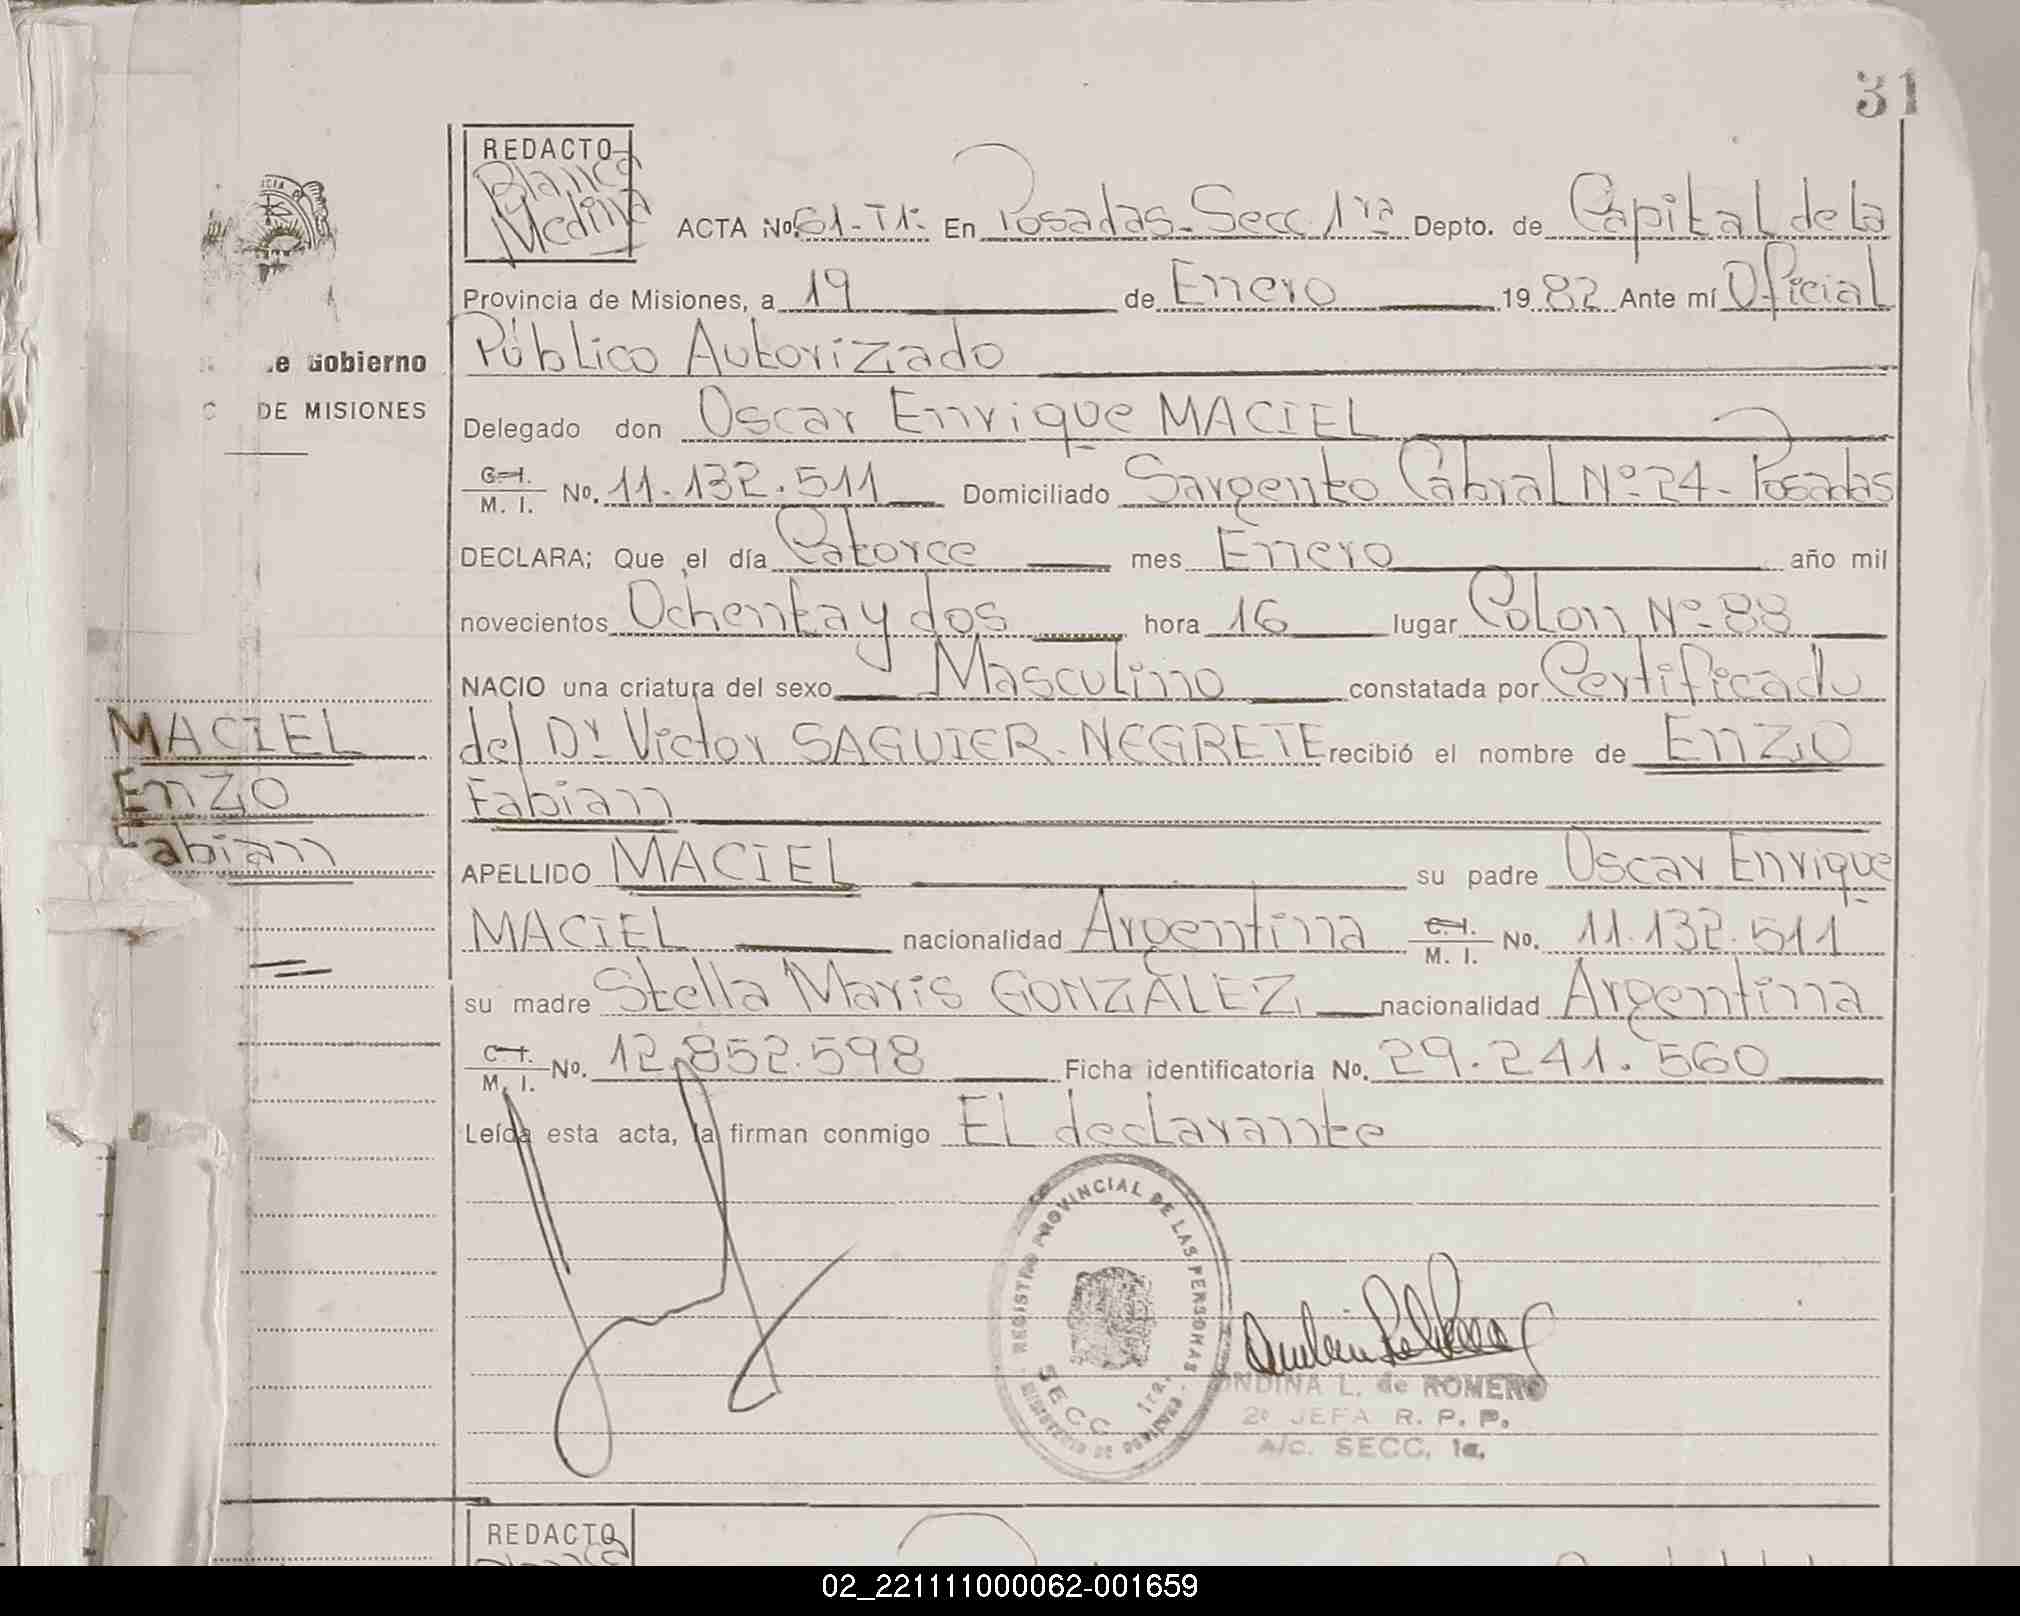 31
REDACTO
Blanca
Medina
ACTA No. 61-T1- En Posadas-Secc. 1ra Depto. de Capital de la
Provincia de Misiones, a 19 de Enero 1982 Ante mí Oficial
Público Autorizado
e Gobierno
DE MISIONES
Delegado don Oscar Enrique MACIEL
C. I.
M. I. No. 11.132.511 Domiciliado Sargento Cabral Nº 24- Posadas
DECLARA; Que el día Catorce mes Enero año mil
novecientos Ochenta y dos hora 16 lugar Colon Nº 88
NACIO una criatura del sexo Masculino constatada por Certificado
del Dr Victor SAGUIER-NEGRETE recibió el nombre de Enzo
Fabian
MACIEL
Enzo
Fabian
APELLIDO MACIEL su padre Oscar Enrique
MACIEL nacionalidad Argentina C. I.
M. I. No. 11.132.511
su madre Stella Maris GONZÁLEZ nacionalidad Argentina
C. I.
M. I. No. 12.852.598 Ficha identificatoria No. 29.241.560
Leída esta acta, la firman conmigo El declarante
REGISTRO PROVINCIAL DE LAS PERSONAS
SECC 1ra.
MINISTERIO DE GOBIERNO
ONDINA L. de ROMERO
2º JEFA R. P. P.
A/C. SECC. 1a.
REDACTO
02_221111000062-001659